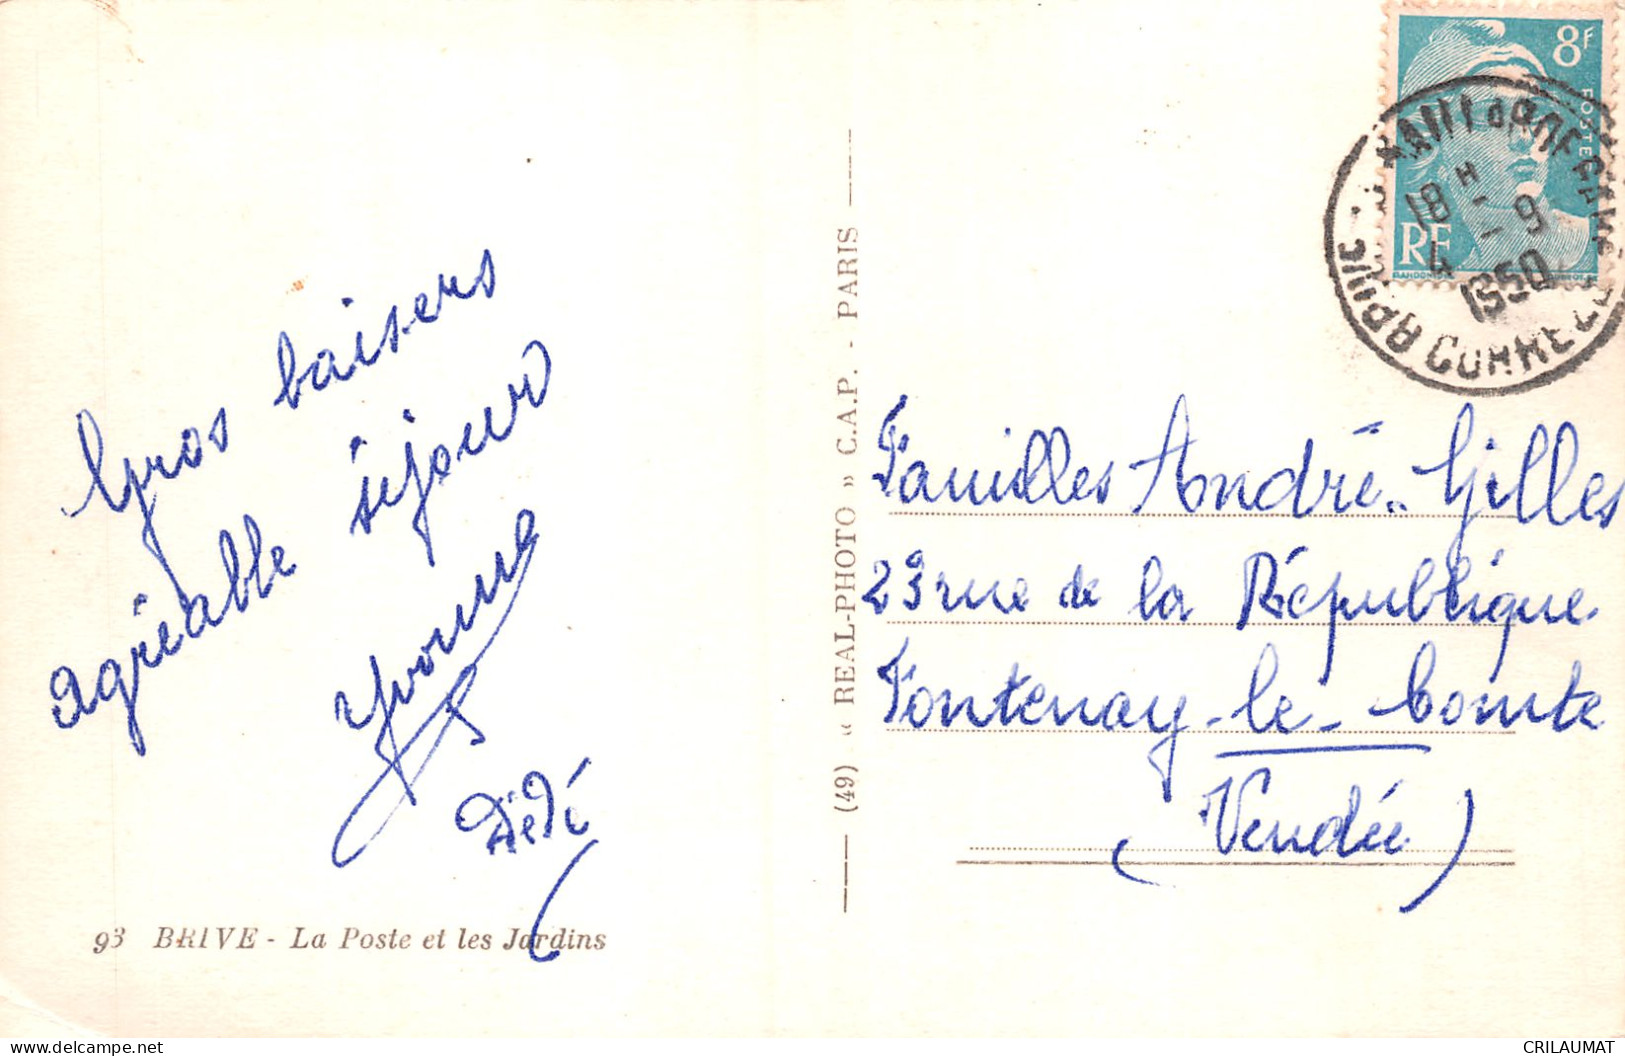 Gros baisers
agréable séjour
Yvonne
Dédé
93 BRIVE - La Poste et les Jardins
(49) « REAL-PHOTO » C.A.P. - PARIS
8F
POSTE
RF
18 H
4 - 9
1950
CORREZE
Familles André-Gilles
23 rue de la République
Fontenay-le-Comte
(Vendée)
CRILAUMAT